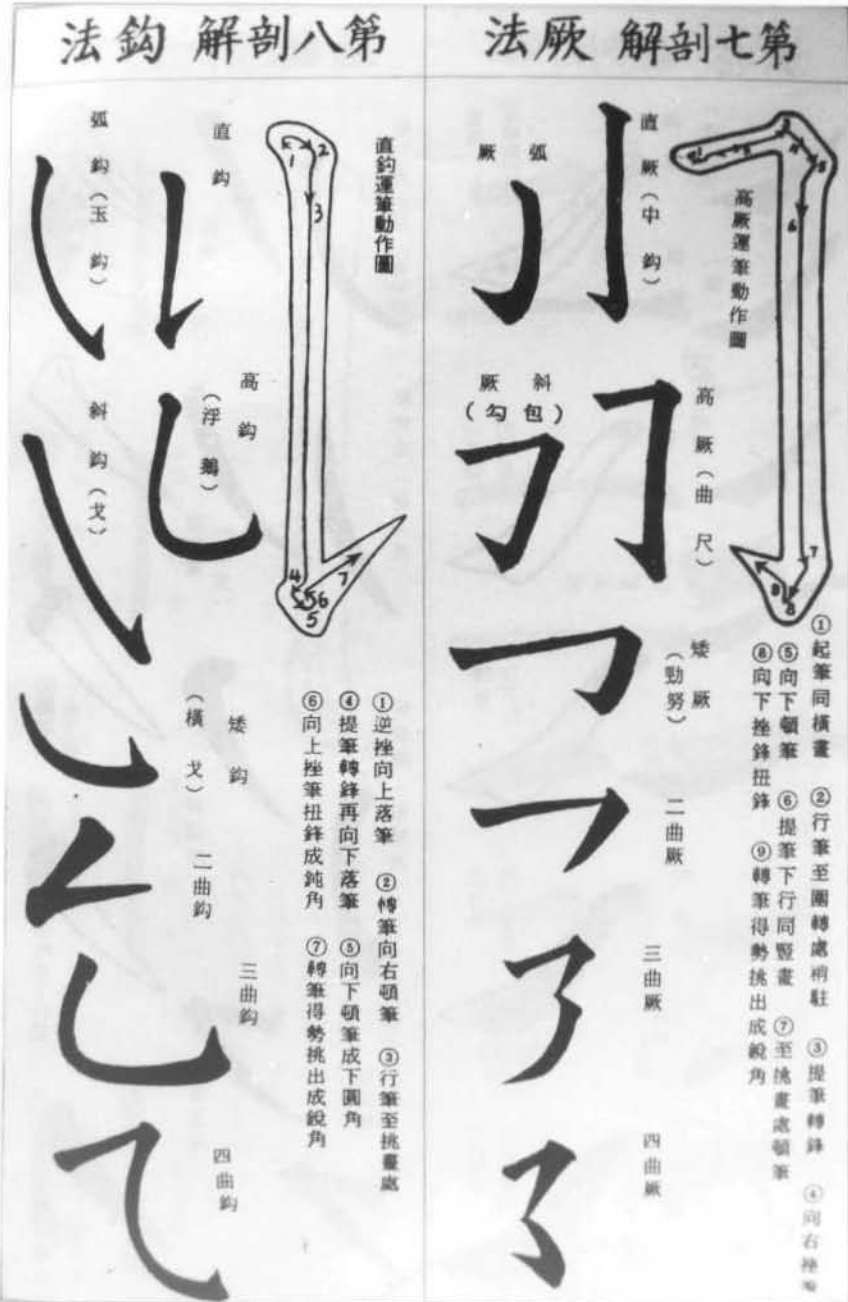 第七剖解 厥法
高厥運筆動作圖
直厥(中鈎)
弧厥
高厥(曲尺)
斜厥
(包勾)
矮厥
(勁努)
二曲厥
三曲厥
四曲厥
①起筆同橫畫 ②行筆至圍轉處稍駐 ③提筆轉鋒 ④向右挫
⑤向下頓筆 ⑥提筆下行同豎畫 ⑦至挑畫處頓筆
⑧向下挫鋒扭鋒 ⑨轉筆得勢挑出成銳角
第八剖解 鈎法
直鈎運筆動作圖
直鈎
弧鈎(玉鈎)
高鈎
(浮鵝)
斜鈎(戈)
矮鈎
(橫戈)
二曲鈎
三曲鈎
四曲鈎
①逆挫向上落筆 ②轉筆向右頓筆 ③行筆至挑畫處
④提筆轉鋒再向下落筆 ⑤向下頓筆成下圓角
⑥向上挫筆扭鋒成鈍角 ⑦轉筆得勢挑出成銳角